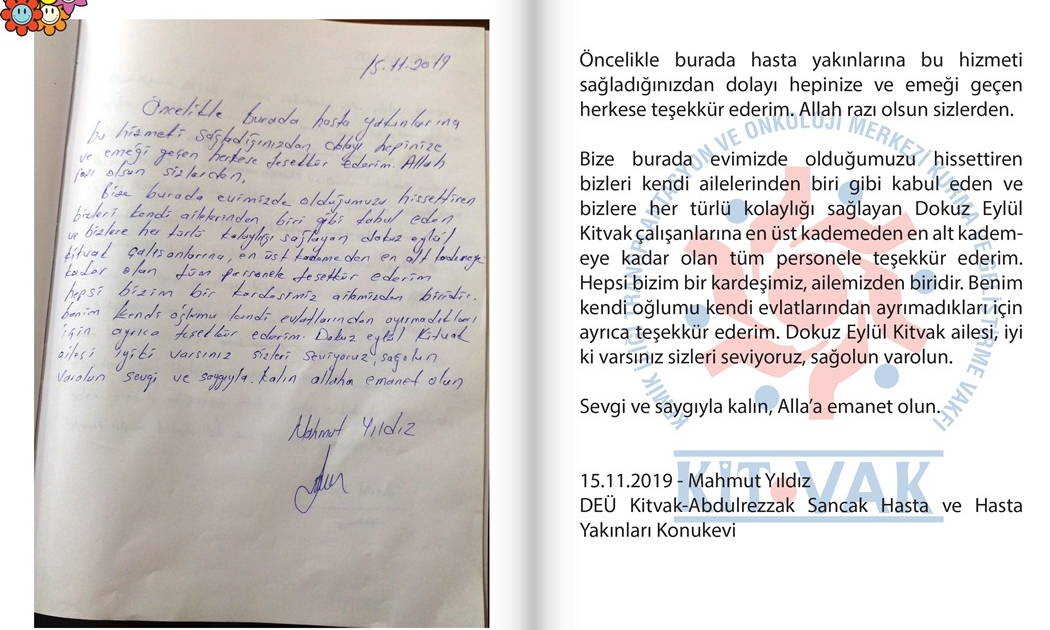 15.11.2019
Öncelikle burada hasta yakınlarına
bu hizmeti sağladığınızdan dolayı hepinize
ve emeği geçen herkese teşekkür ederim. Allah
razı olsun sizlerden.
Bize burada evimizde olduğumuzu hissettiren
bizleri kendi ailelerinden biri gibi kabul eden
ve bizlere her türlü kolaylığı sağlayan dokuz eylül
kitvak çalışanlarına, en üst kademeden en alt kademeye
kadar olan tüm personele teşekkür ederim
hepsi bizim bir kardeşimiz ailemizden biridir.
benim kendi oğlumu kendi evlatlarından ayırmadıkları
için ayrıca teşekkür ederim. Dokuz eylül Kitvak
ailesi iyiki varsınız sizleri seviyoruz, sağolun
varolun sevgi ve saygıyla kalın allaha emanet olun
Mahmut Yıldız
Öncelikle burada hasta yakınlarına bu hizmeti
sağladığınızdan dolayı hepinize ve emeği geçen
herkese teşekkür ederim. Allah razı olsun sizlerden.
Bize burada evimizde olduğumuzu hissettiren
bizleri kendi ailelerinden biri gibi kabul eden ve
bizlere her türlü kolaylığı sağlayan Dokuz Eylül
Kitvak çalışanlarına en üst kademeden en alt kadem-
eye kadar olan tüm personele teşekkür ederim.
Hepsi bizim bir kardeşimiz, ailemizden biridir. Benim
kendi oğlumu kendi evlatlarından ayırımadıkları için
ayrıca teşekkür ederim. Dokuz Eylül Kitvak ailesi, iyi
ki varsınız sizleri seviyoruz, sağolun varolun.
Sevgi ve saygıyla kalın, Alla'a emanet olun.
15.11.2019 - Mahmut Yıldız
DEÜ Kitvak-Abdulrezzak Sancak Hasta ve Hasta
Yakınları Konukevi
KEMİK İLİĞİ TRANSPLANTASYON VE ONKOLOJİ MERKEZİ KURMA VE GELİŞTİRME VAKFI
KİT VAK